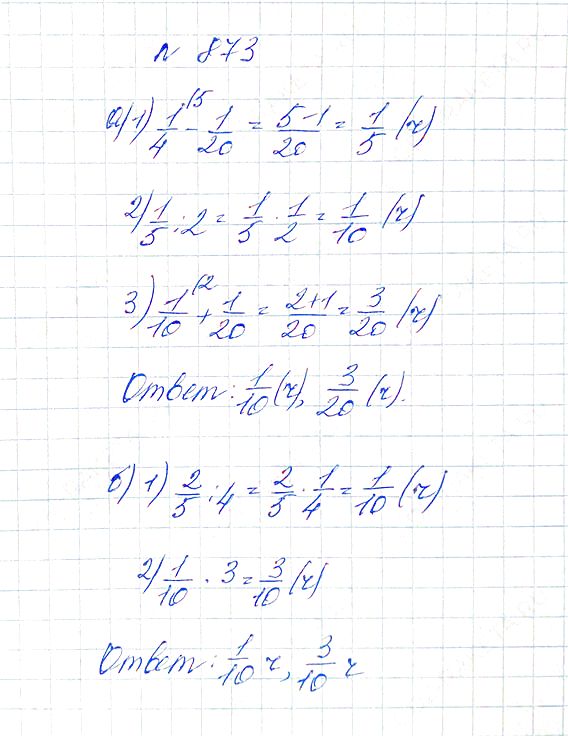 № 873
а) 1) 1/4 - 1/20 = (5-1)/20 = 1/5 (ч)
2) 1/5 : 2 = 1/5 · 1/2 = 1/10 (ч)
3) 1/10 + 1/20 = (2+1)/20 = 3/20 (ч)
Ответ: 1/10 (ч), 3/20 (ч).
б) 1) 2/5 : 4 = 2/5 · 1/4 = 1/10 (ч)
2) 1/10 · 3 = 3/10 (ч)
Ответ: 1/10 ч, 3/10 ч